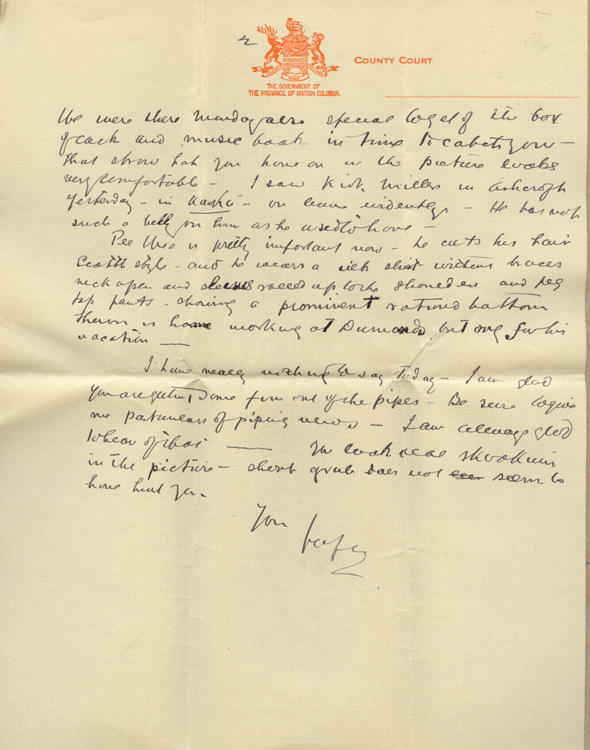 2
COUNTY COURT
THE GOVERNMENT OF
THE PROVINCE OF BRITISH COLUMBIA
We were there special to get of the box
of cack and music book in time to catch you –
that straw hat you have on in the picture looks
very comfortable – I saw Kirk Miller in Ashcroft
yesterday – in Kaki – on leave evidently – He has not
such a belly on him as he used to have –
Pee Wee is pretty important now – he cuts his hair
style – and he wears a silk shirt without braces
neck open and sleeves rolled up to the shoulder and peg
top pants – showing a prominent rotund bottom
is home working at but only for his
vacation —
I have really nothing to say today – I am glad
you are getting some fun out of the pipes – Be sure to give
me particulars of piping news – I am always glad
to hear of that — You look real skookum
in the picture – grub does not seem to
have hurt you.
Your